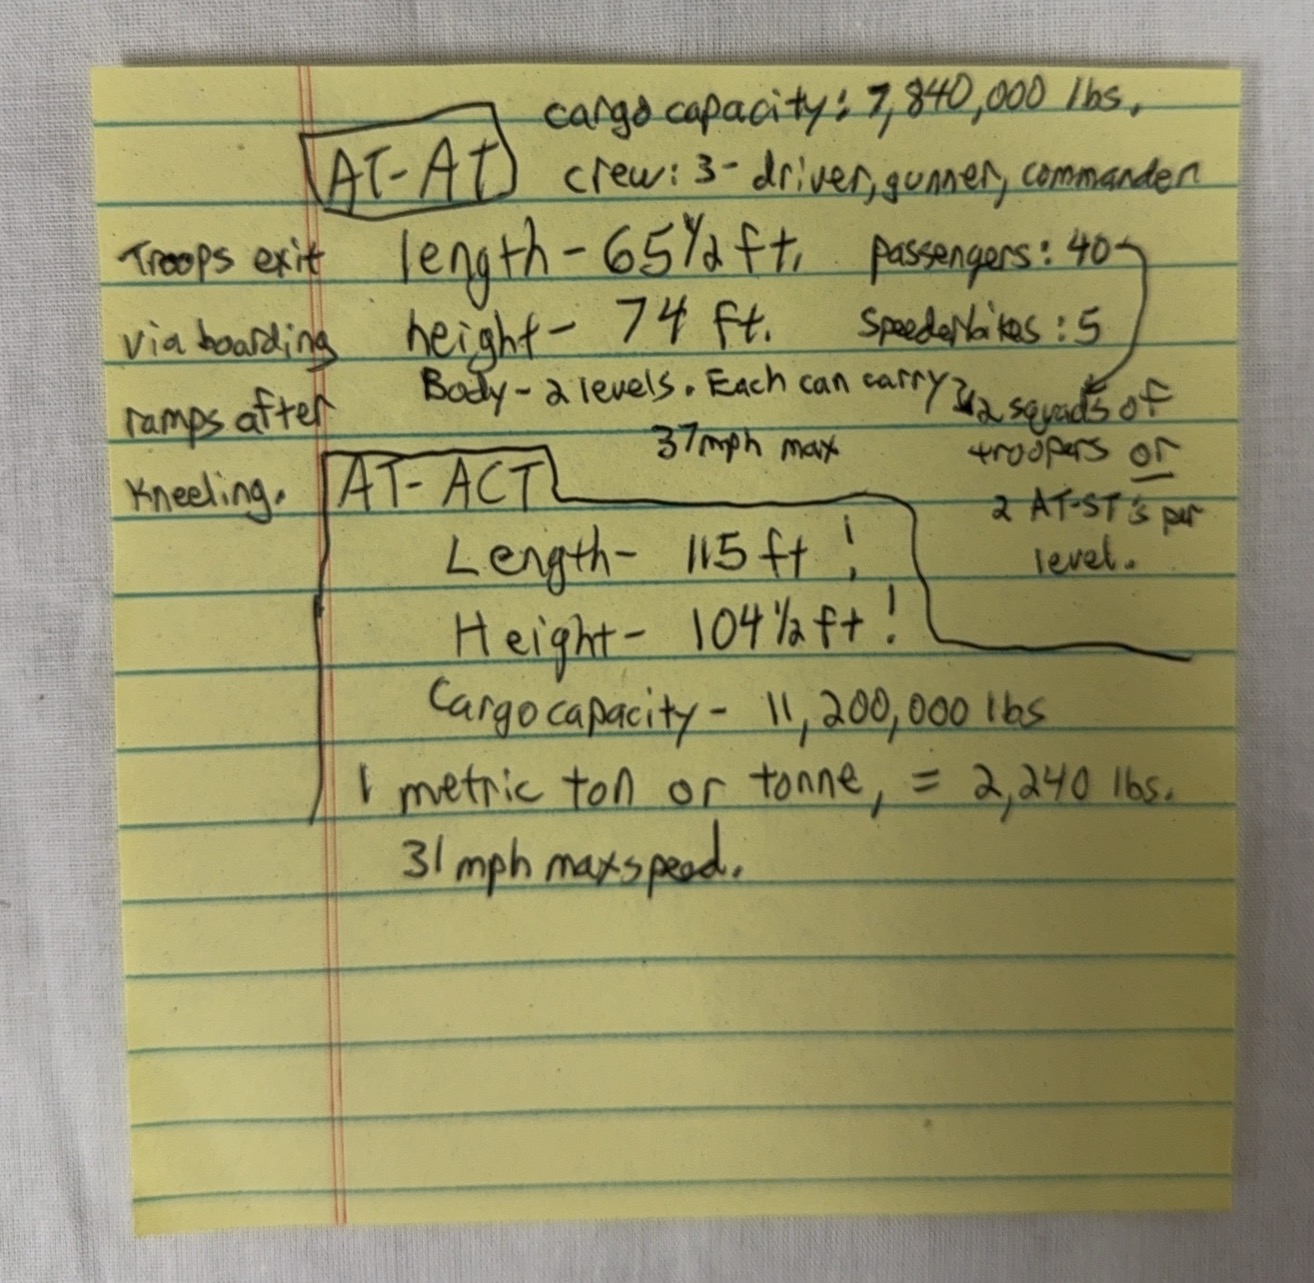 cargo capacity: 7,840,000 lbs.
AT-AT
crew: 3- driver, gunner, commander
length - 65 1/2 ft.
passengers: 40
height - 74 ft.
Speederbikes: 5
Body - 2 levels. Each can carry
2 squads of
troopers or
2 AT-ST's per
level.
37mph max
Troops exit
via boarding
ramps after
Kneeling.
AT-ACT
Length - 115 ft!
Height - 104 1/2 ft!
Cargo capacity - 11,200,000 lbs
1 metric ton or tonne, = 2,240 lbs.
31 mph max speed.